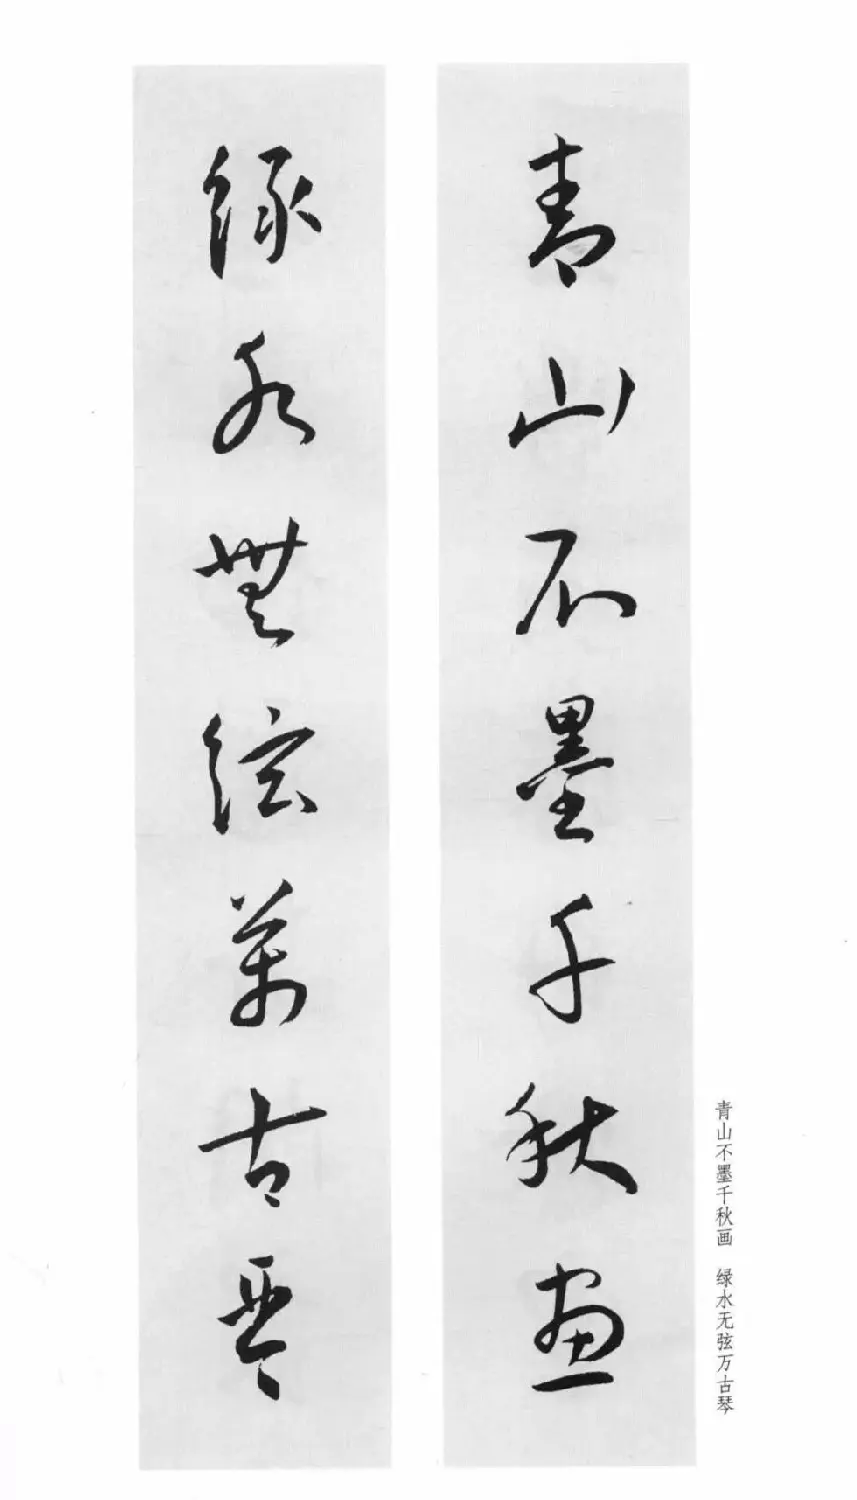 青山不墨千秋畫
綠水無絃萬古琴
青山不墨千秋画 绿水无弦万古琴